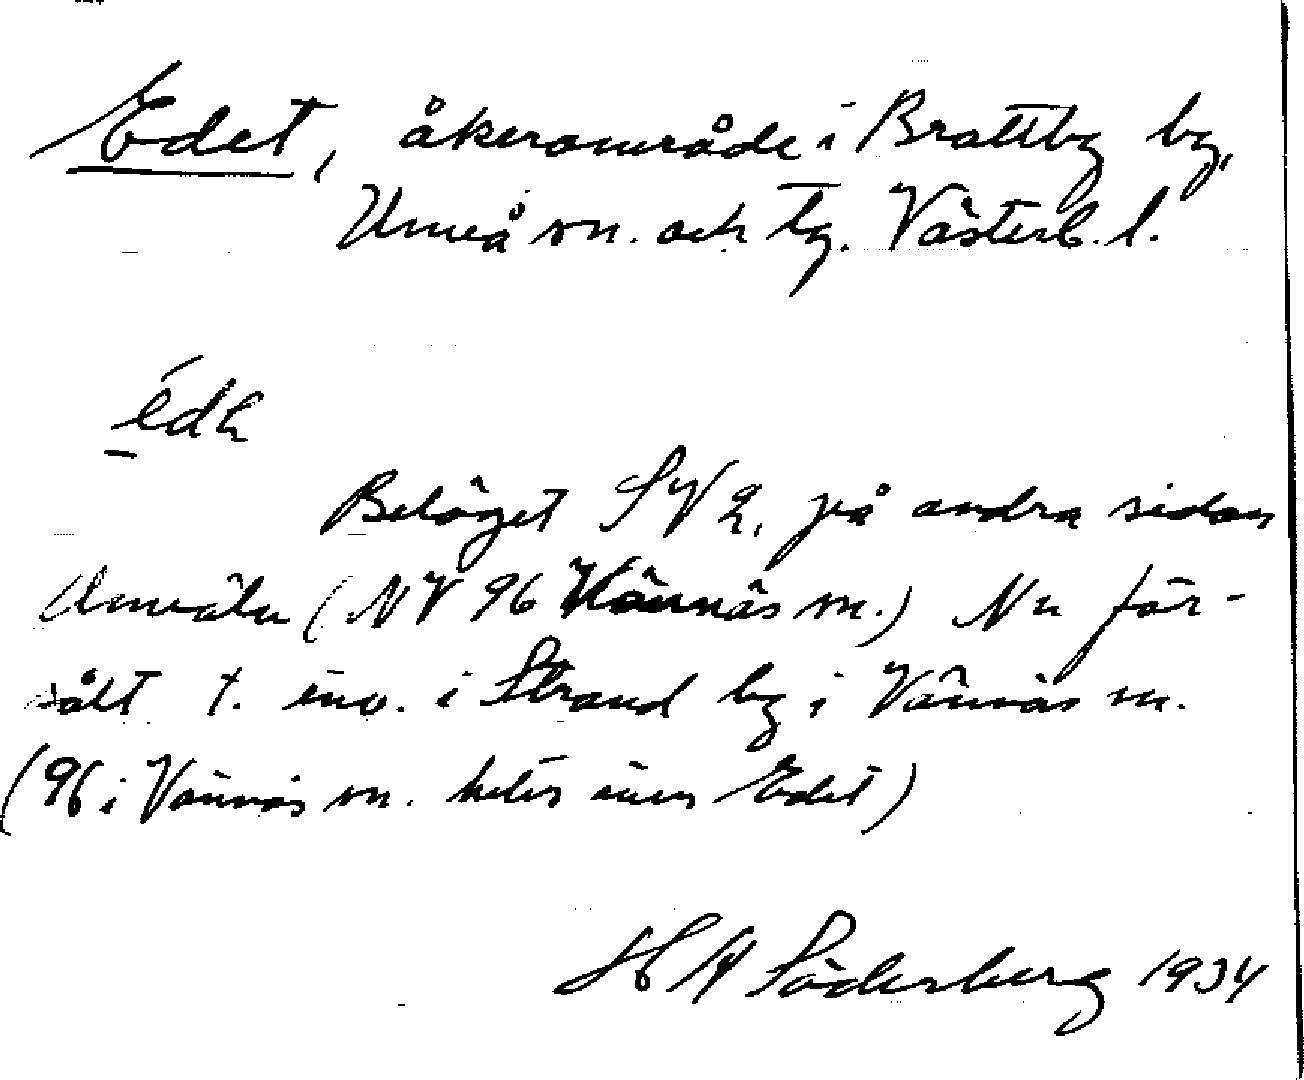 Edet, åkerområde i Brattby by,
Umeå sn. och tg. Västerb. l.
Beläget SV 2, på andra sidan
Umeälv (NV 96 Vännäs sn.) Nu för-
sålt t. inv. i Strand by i Vännäs sn.
(96 i Vännäs sn. heter även Edet)
H A Söderberg 1934